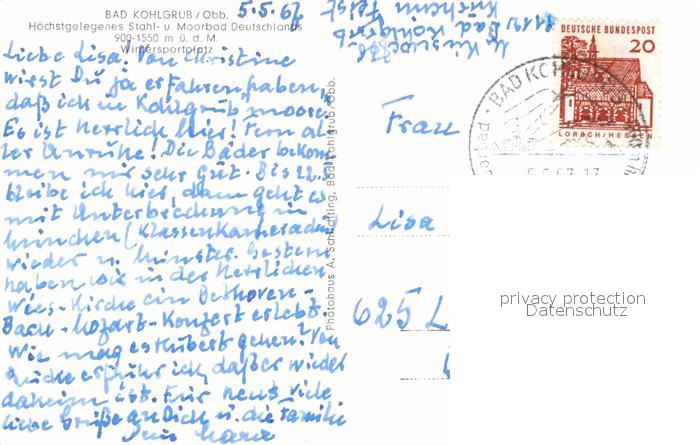 BAD KOHLGRUB / Obb.
Höchstgelegenes Stahl- u. Moorbad Deutschlands
900-1550 m ü. d. M.
Wintersportplatz
5.5.67
Liebe Lisa. Von Christine
wirst Du ja erfahren haben,
daß ich in Kohlgrub moore.
Es ist herrlich hier! Fern al-
ler Unruhe! Die Bäder bekom-
men mir sehr gut. Bis 22.5.
bleibe ich hier, dann geht es
mit Unterbrechung in
München (Klassenkameradin)
wieder n. Münster. Gestern
haben wir in der herrlichen
Wies-Kirche ein Bethoven-
Bach-Mozart-Konzert erlebt.
Wie mag es Hubert gehen? Von
erfuhr ich, daß er wieder
daheim ist. Für heute viele
liebe Grüße an Dich u. die Familie
Dein
Photohaus A. Schilffling, Bad Kohlgrub/Obb.
Bad Kohlgrub
DEUTSCHE BUNDESPOST
20
LORSCH/HESSEN
BAD KOHL
5.5.67-17
Frau
Lisa
625 L
privacy protection
Datenschutz